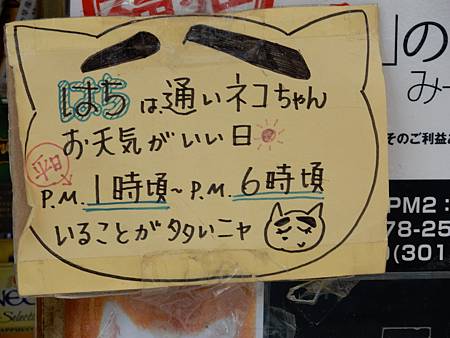 はちは通いネコちゃん
お天気がいい日
平日
P.M.1時頃~P.M.6時頃
いることが多いニャ
」の
みー
そのご利益あ
PM2:
78-25
(301